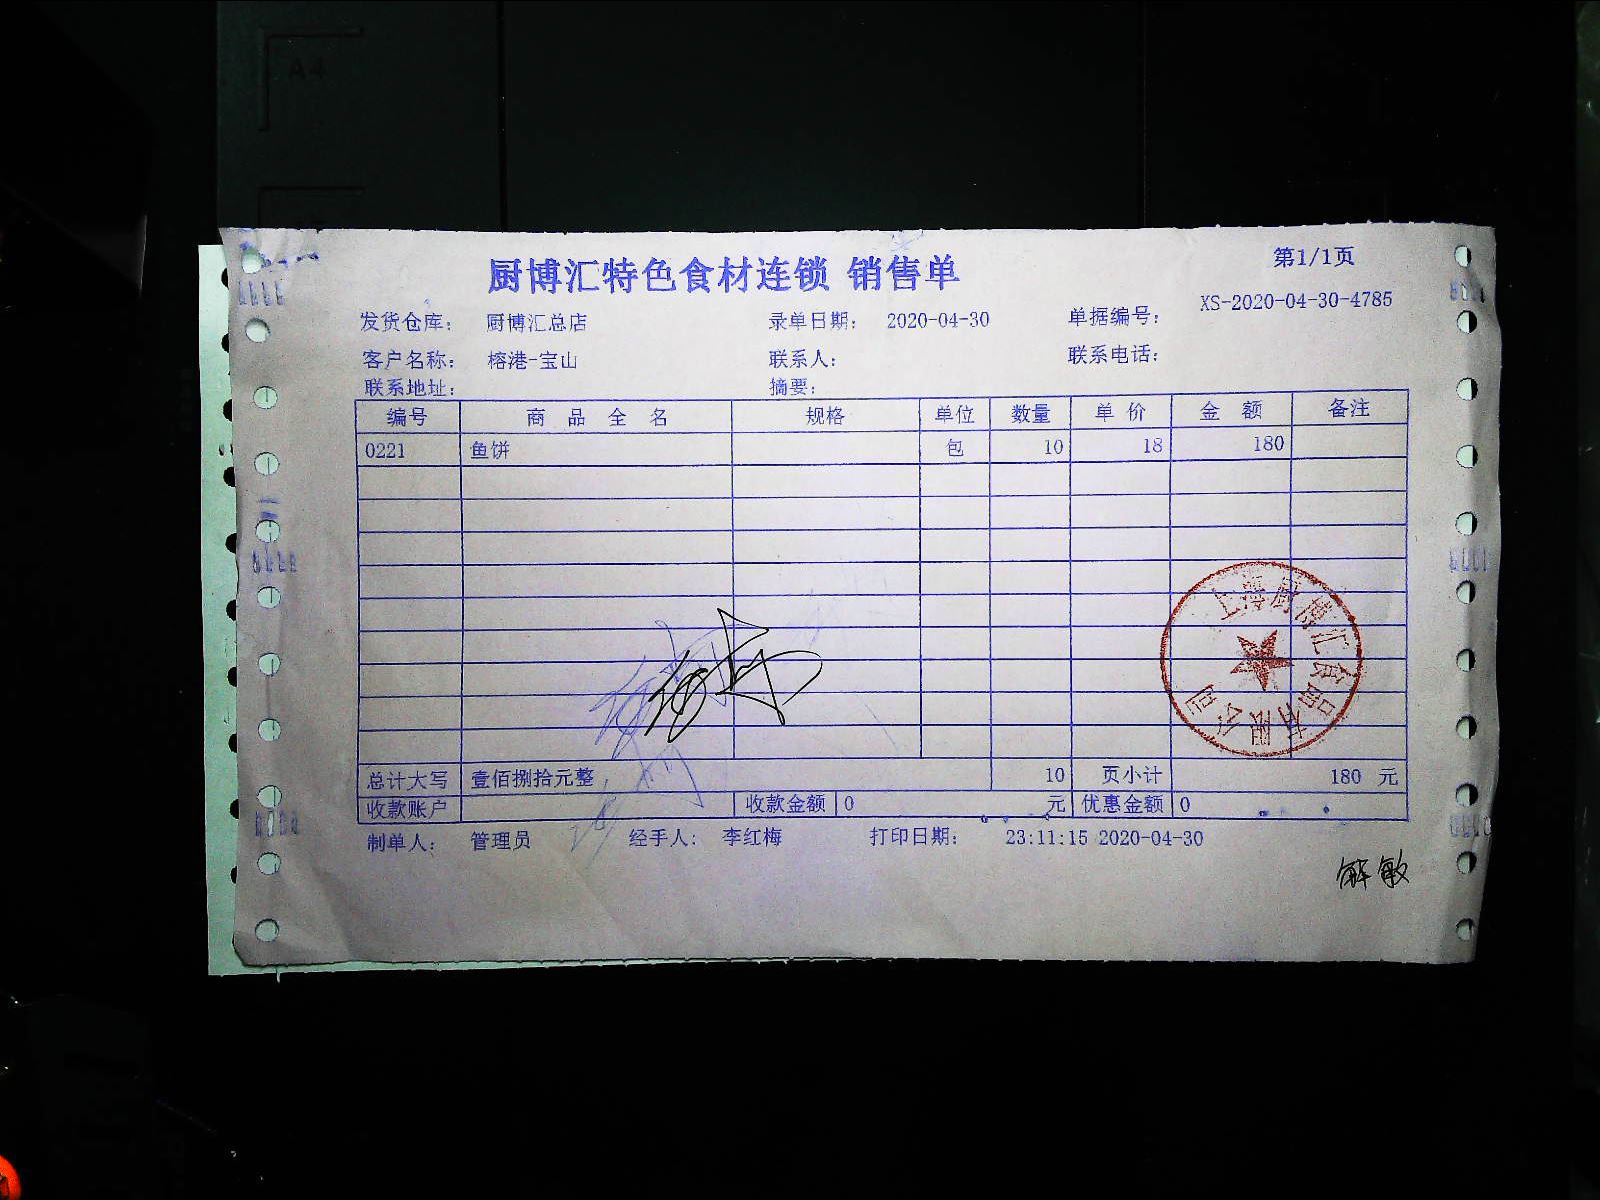 第1/1页
厨博汇特色食材连锁 销售单
发货仓库: 厨博汇总店 录单日期: 2020-04-30 单据编号: XS-2020-04-30-4785
客户名称: 榕港-宝山 联系人: 联系电话:
联系地址: 摘要:
编号 商品全名 规格 单位 数量 单价 金额 备注
0221 鱼饼 包 10 18 180
上海厨博汇食品有限公司
总计大写 壹佰捌拾元整 10 页小计 180 元
收款账户 收款金额 0 元 优惠金额 0
制单人: 管理员 经手人: 李红梅 打印日期: 23:11:15 2020-04-30
解敏
A4